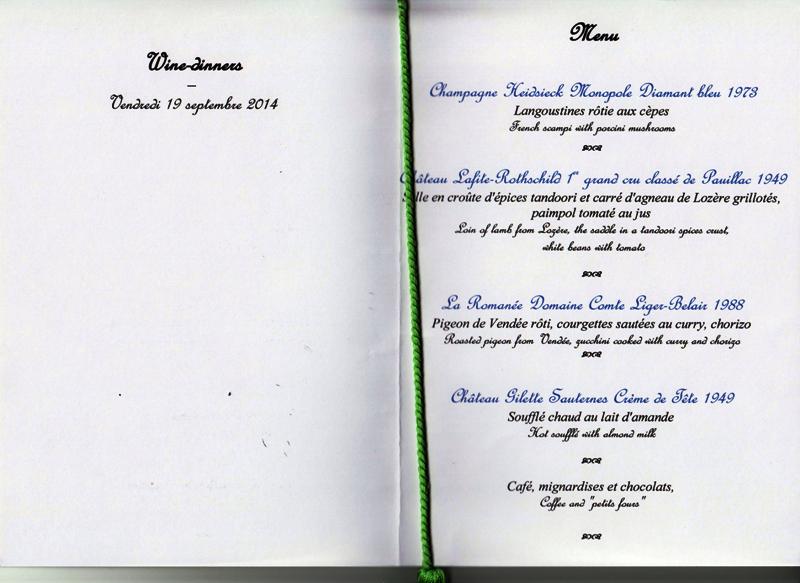 Wine-dinners
–
Vendredi 19 septembre 2014
Menu
Champagne Heidsieck Monopole Diamant bleu 1973
Langoustines rôtie aux cèpes
French scampi with porcini mushrooms
Château Lafite-Rothschild 1er grand cru classé de Pauillac 1949
Selle en croûte d'épices tandoori et carré d'agneau de Lozère grillotés,
paimpol tomaté au jus
Loin of lamb from Lozère, the saddle in a tandoori spices crust,
white beans with tomato
La Romanée Domaine Comte Liger-Belair 1988
Pigeon de Vendée rôti, courgettes sautées au curry, chorizo
Roasted pigeon from Vendée, zucchini cooked with curry and chorizo
Château Gilette Sauternes Crème de Tête 1949
Soufflé chaud au lait d'amande
Hot soufflé with almond milk
Café, mignardises et chocolats,
Coffee and "petits fours"